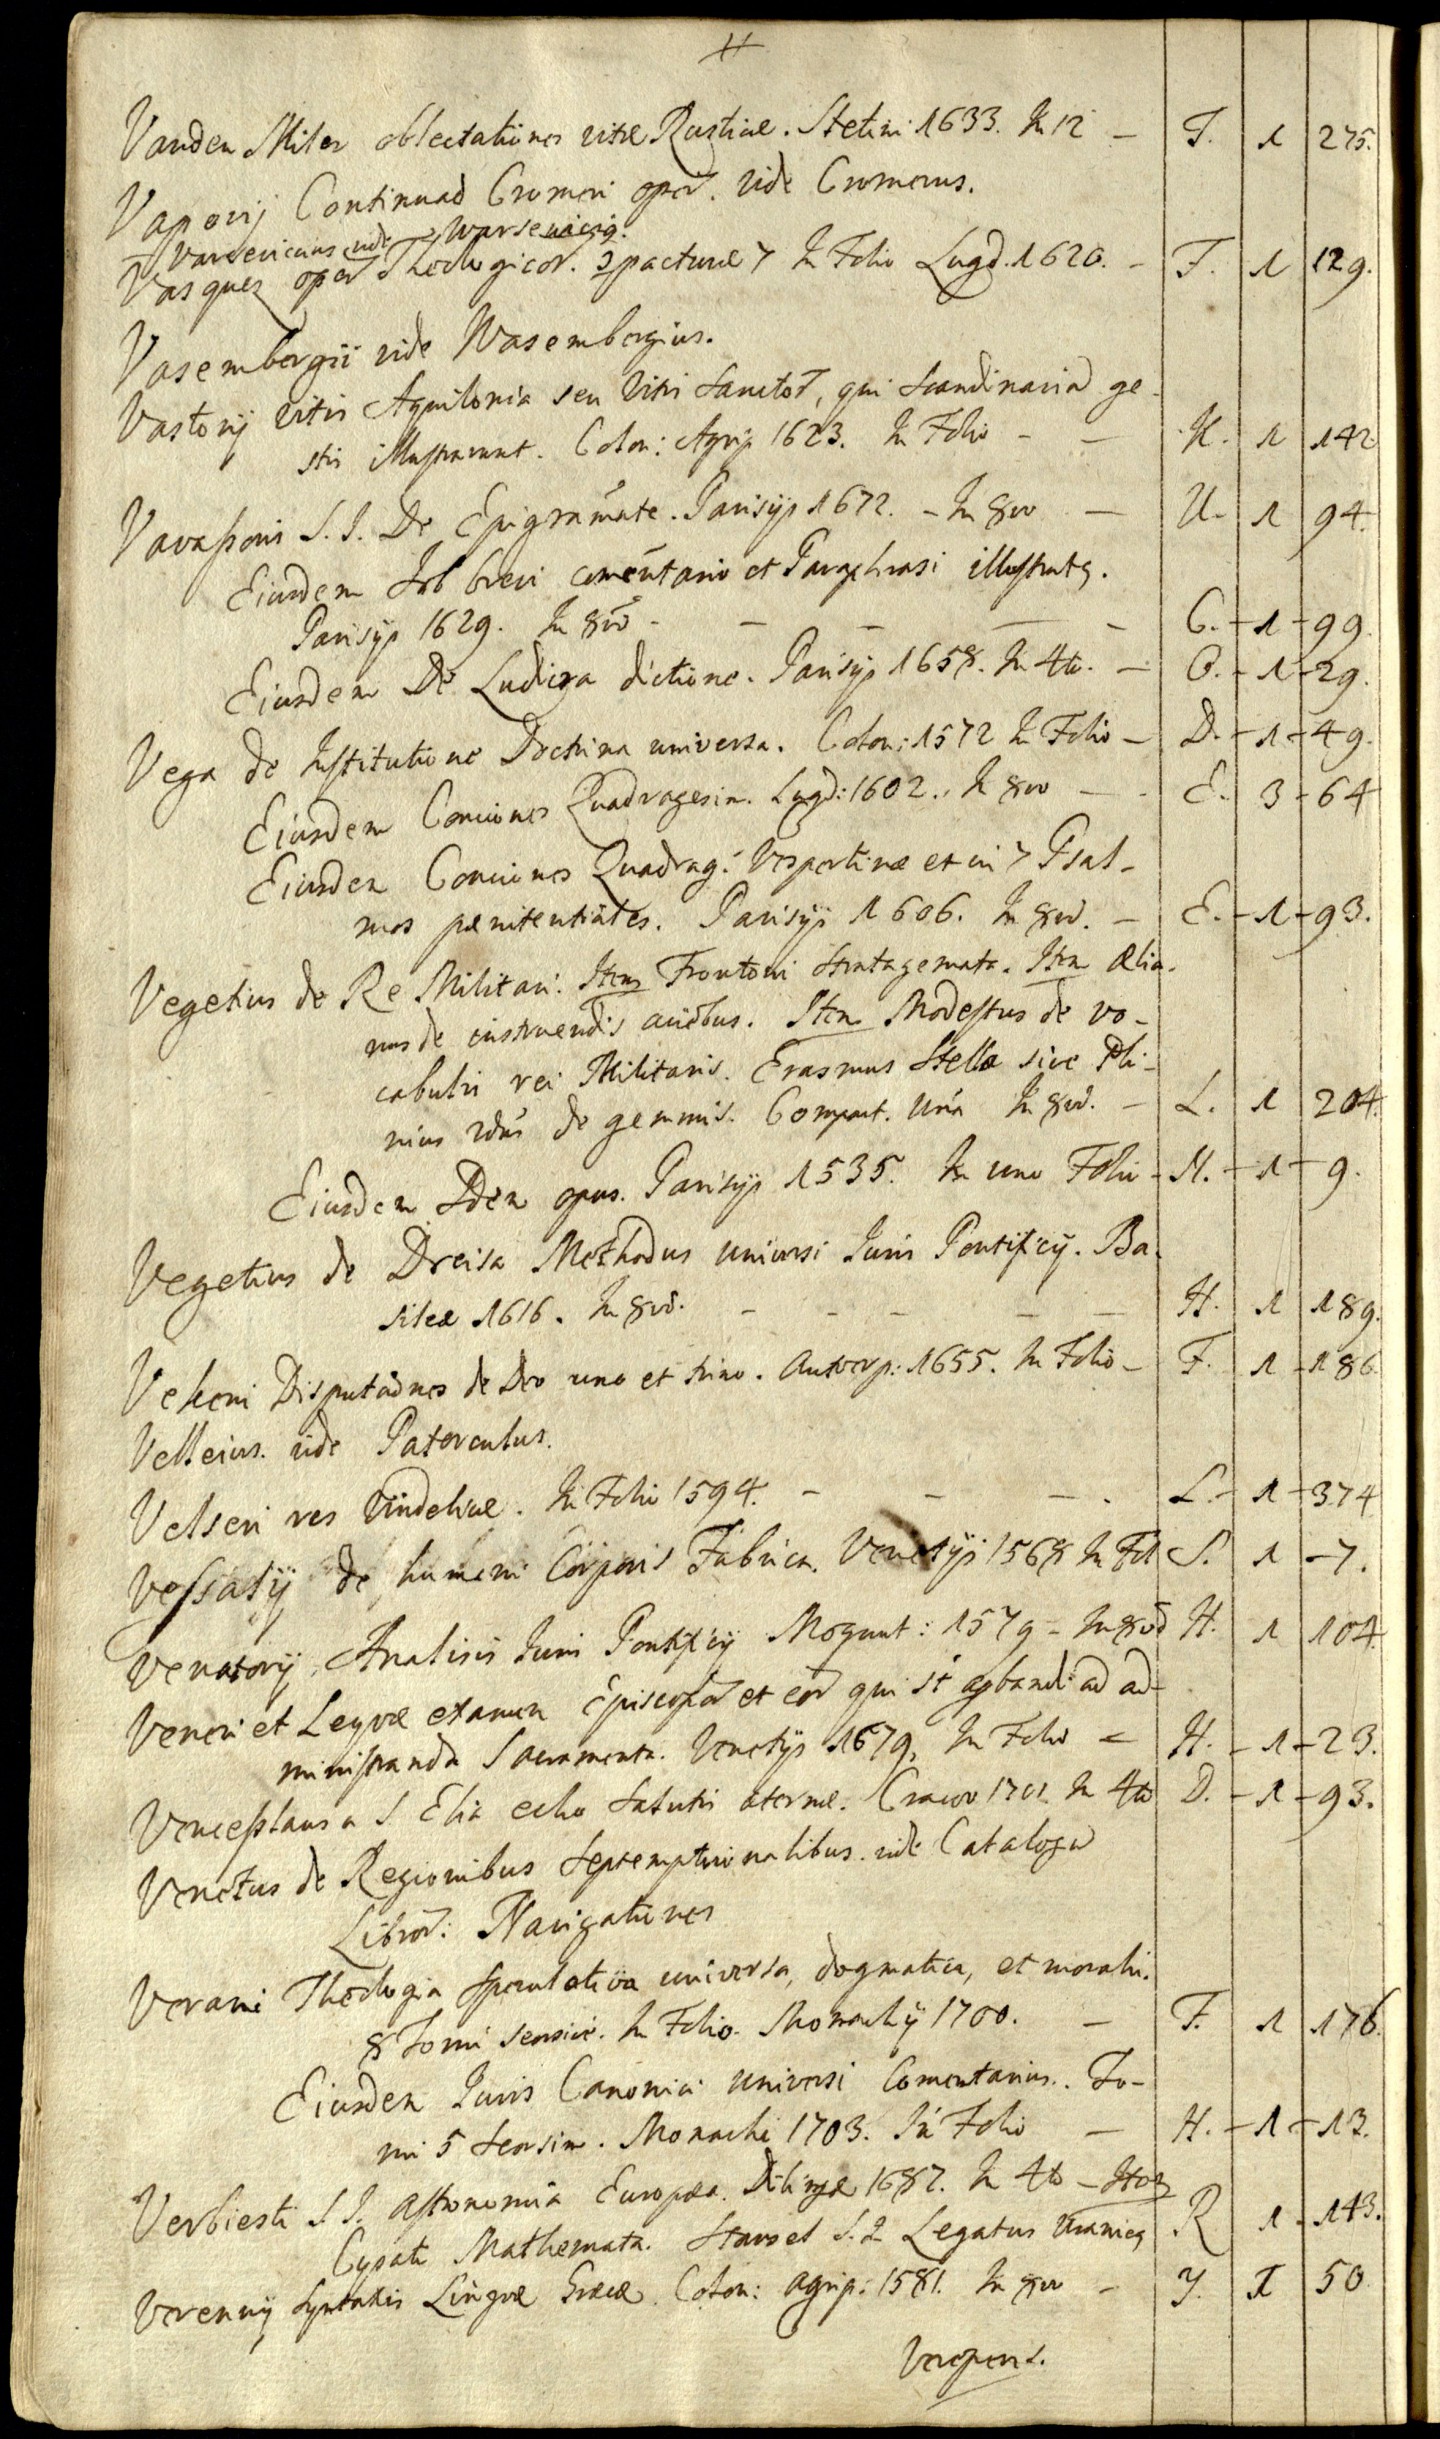 Vanden Miler oblectationes vitæ Rusticæ. Stetini 1633. In 12 — F. 1 275.
Vapovij Continuad Cromeri oper. vide Cromerus.
Varsevicius vide Warsevicig.
Vasquez oper Theologicor. 7 In Folio Lugd. 1620. — F. 1 129.
Vasembergii vide Wasembergius.
Vastovij vitis Aquilonia seu Vitæ Sanctor, qui Scandinaviã ge-
stis illustrarunt. Colon: Agrip 1623. In Folio — — K. 1 142
Vavassoris S. J. De Epigrãmate. Parisijs 1672. – In 8vo — U. 1 94.
Eiusdem Iob brevi comẽntario et Paraphrasi illustratg.
Parisijs 1629. In 8vo – — — — – C. – 1 – 99.
Eiusdem De Ludicra dictione. Parisijs 1658. In 4to. — O. – 1 – 29.
Vega de Institutione Doctrina universa. Colon: 1572 In Folio — D. – 1 – 49.
Eiusdem Conciones Quadragesim. Lugd: 1602. In 8vo — E. 3 – 64
Eiusdem Conciones Quadrag: Vespertinæ et in 7 Psal-
mos pænitentiales. Parisijs 1606. In 8vo. — E. – 1 – 93.
Vegetius de Re Militari. Item Frontoni Stratagemata. Item Ælia-
nus de instruendis aciebus. Item Modestus de vo-
cabulis rei Militaris. Erasmus Stella sive Pli-
nius de gemmis. Compact. Una In 8vo. — L. 1 204.
Eiusdem Idem opus. Parisijs 1535. In uno Folio – M. – 1 – 9.
Vegetius de Dreisa Methodus universi Iuris Pontificij. Ba-
sileæ 1616. In 8vo. – – – — — H. 1 189.
Vekeni Disputaõnes de Deo uno et trino. Antverp: 1655. In Folio – F. 1 – 186.
Velleius. vide Paterculus.
Velseri res Vindelicæ. In Folio 1594. – – — . L. – 1 – 374
Vessalij de humani Corporis Fabrica. Venetijs 1568 In Fol S. 1 – 7.
Venatorij Analisis Iuris Pontificij Mogunt: 1579 – In 8vo H. 1 104.
Veneri et Leyvæ examen Episcopor et eor qui st apbandi ad ad-
ministranda Sacramenta. Venetijs 1679. In Folio – H. – 1 – 23.
Venceslaus a S Elia echo Salutis æternæ. Cracov 1701 In 4to D. – 1 – 93.
Venetus de Regionibus Septemptrionalibus. vide Catalogũ
Libror: Navigationes
Verani Theologia Speculativa universa, dogmatica, et moralis.
8 Tomi seorsive. In Folio. Monachij 1700. — F. 1 176.
Eiusdem Iuris Canonici universi Comentarius. To-
mi 5 Seorsim. Monachi 1703. In Folio — H. – 1 – 13.
Verbiesti S. J. Astronomia Europæa. Dilingæ 1687. In 4to – Item
Cysati Mathemata. Stansel S. J. Legatus Uranicg R 1 – 143.
Verennij Syntaxis Linguæ Græcæ. Colon: Agrip: 1581. In 8vo – Y. I 50
Verepeus.